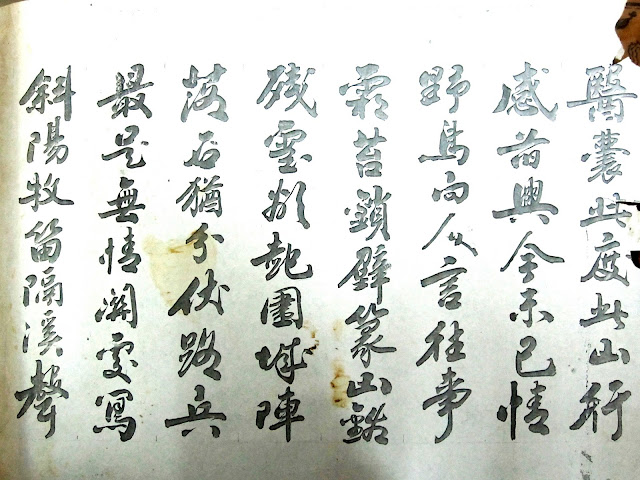 醫囊此度此山行
感昔興今未已情
野鳥向人言往事
霜苔鎖壁篆山
殘雲起圍城陣
落石猶分伏路兵
最是無情處寫
斜陽牧笛隔溪聲